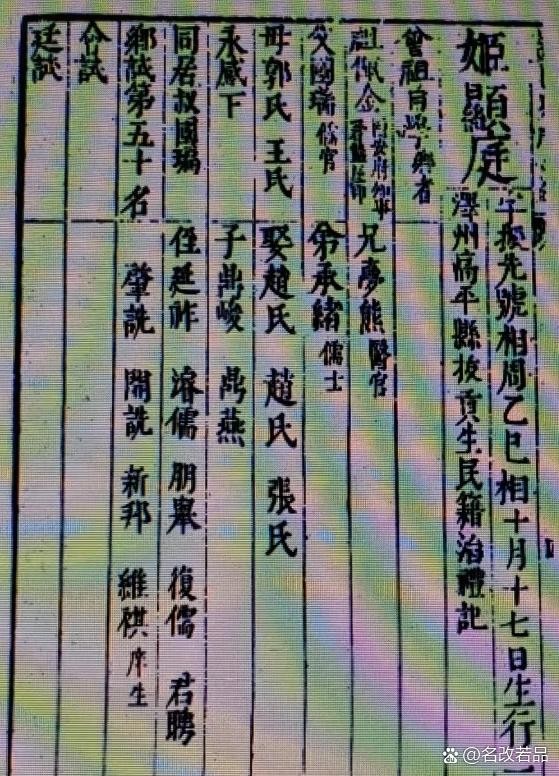 姬顯庭
字 先號相周乙巳相十月十七日生行
澤州高平縣拔貢生民籍治禮記
曾祖自學 鄉耆
祖佩金
兄夢熊 醫官
父國瑞 儒官
弟承緒 儒士
母郭氏 王氏
娶趙氏 趙氏 張氏
永感下
子鼎峻 鼎燕
同居叔國瑀
侄廷祚 溶儒 朋舉 復儒 君聘
鄉試第五十名
肇詵 開詵 新邦 維祺 庠生
會試
廷試
@名改若品